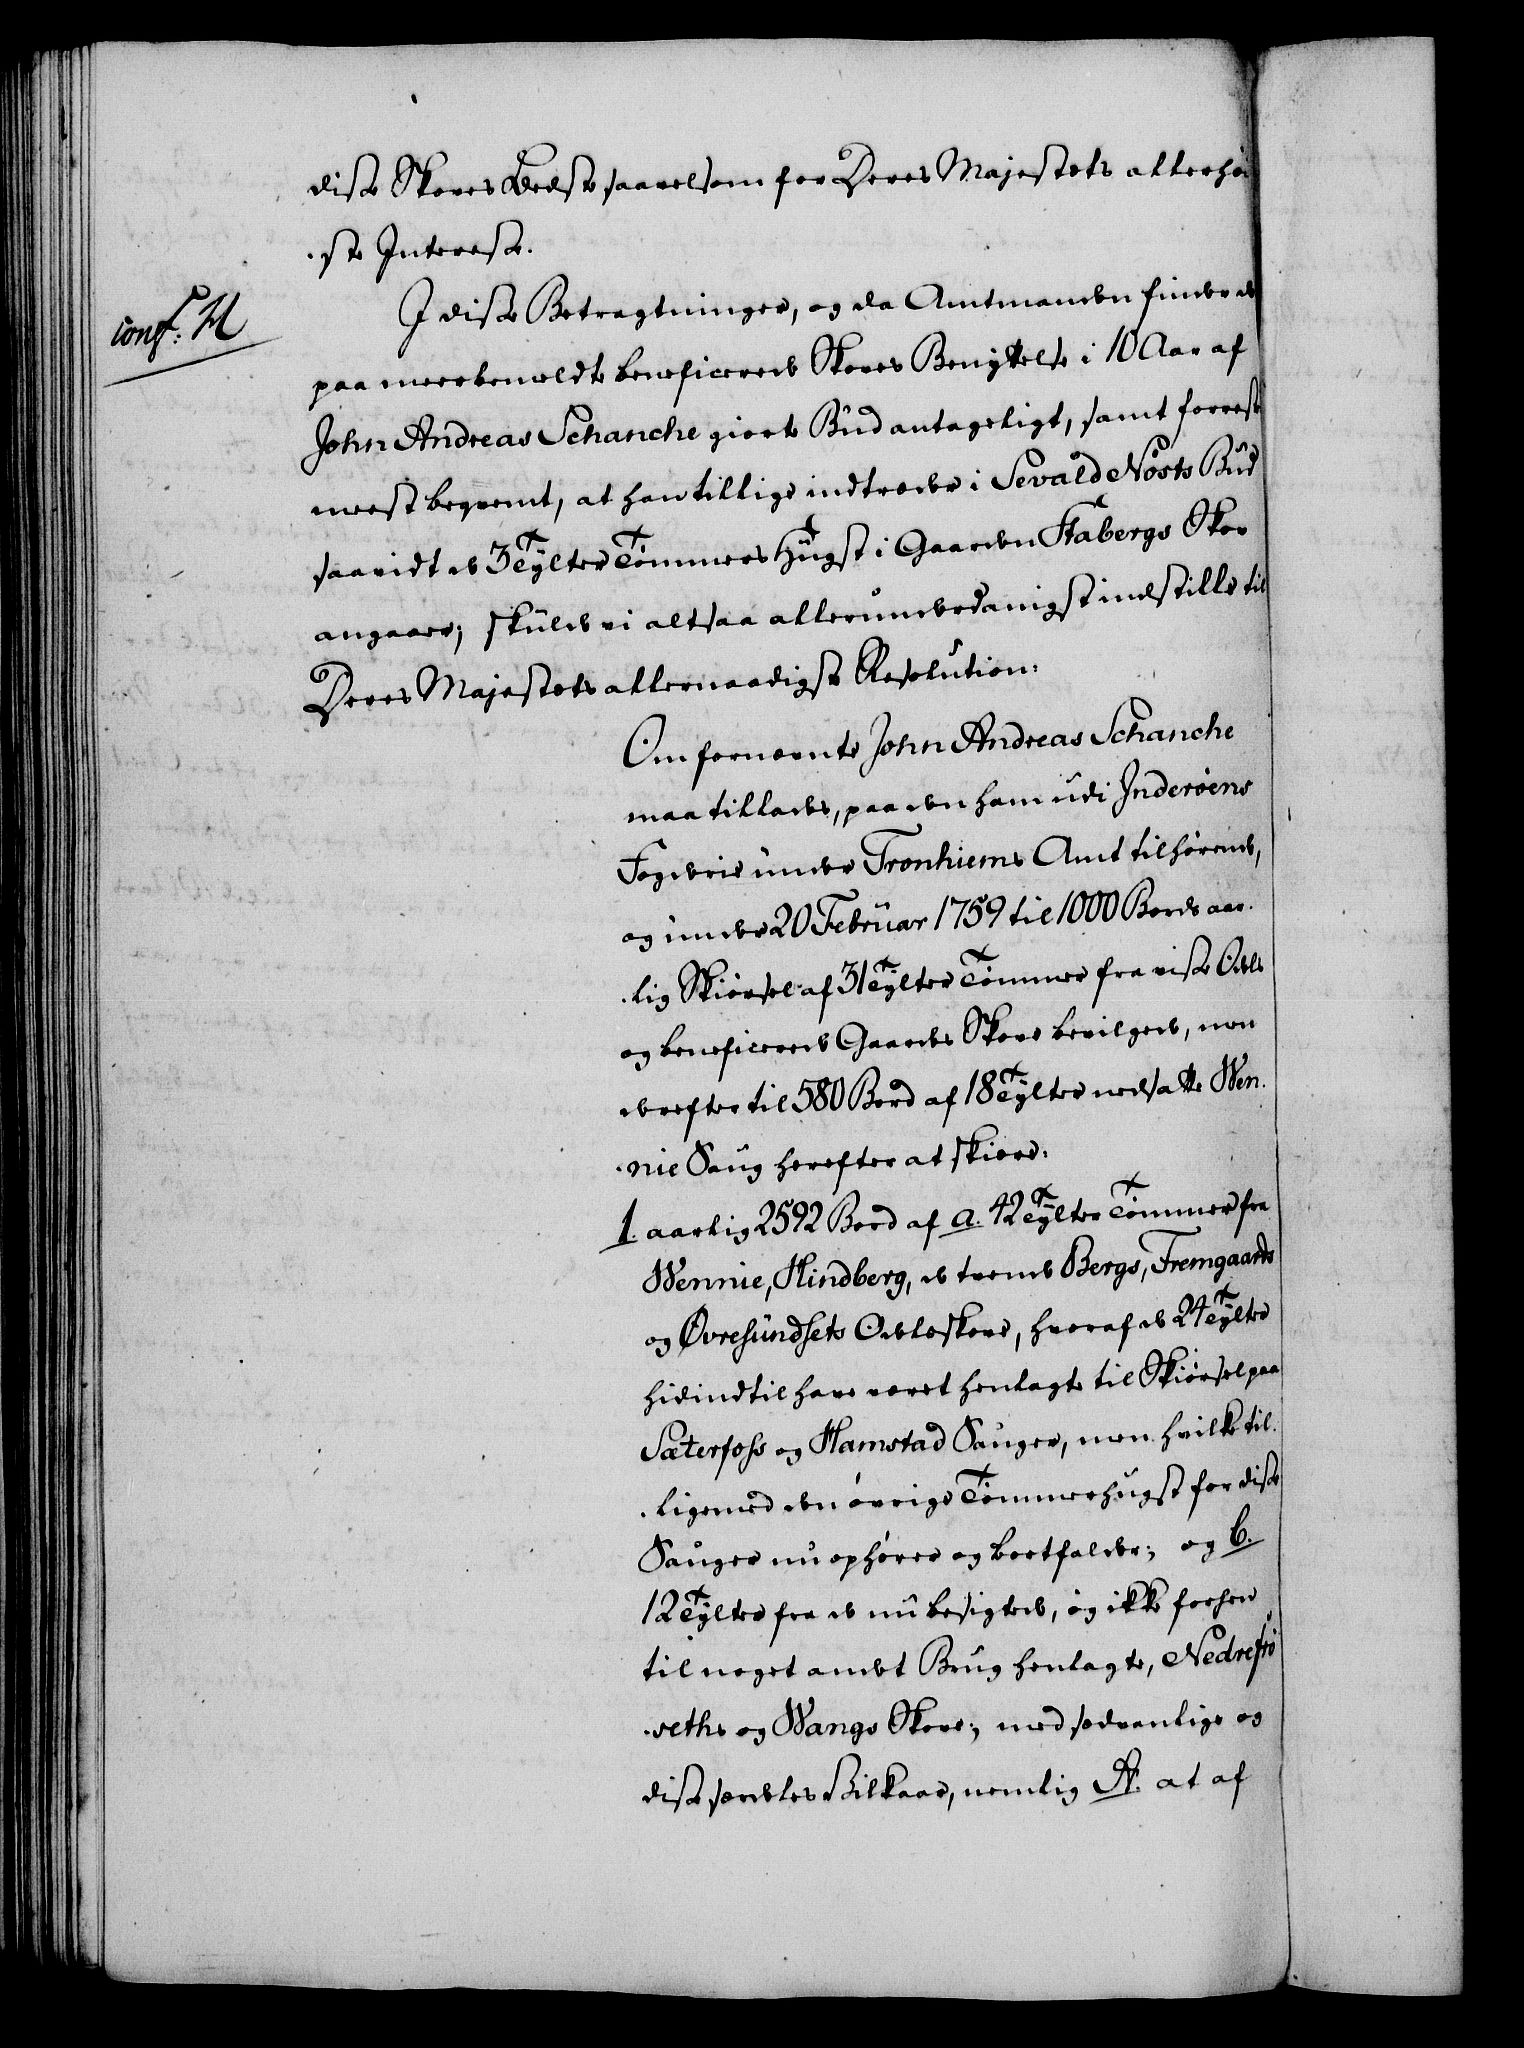 disse Skoves Bedste saavelsom for Deres Majestets allerhøi
-ste Interesse.
conf: M
I disse Betragtninger, og da Amtmanden finder det
paa meerbemeldte beneficerede Skoves Benyttelse i 10 Aar af
John Andreas Schanche giorte Bud antageligt, samt forrest
meest beqvemt, at han tillige indtræder i Sevald Nøsts Bud
saavidt de 3 Tylter Tømmers Hugst i Gaarden Stabergs Skov
angaaer; skulde vi altsaa allerunderdanigst indstille til
Deres Majestets allernaadigste Resolution:
Om fornevnte John Andreas Schanche
maa tillades, paa den ham udi Inderøens
Fogderie under Tronhiems Amt tilhørende,
og under 20 Februar 1759 til 1000 Bords aar-
-lig Skiørsel af 31 Tylter Tømmer fra visse Odels
og beneficerede Gaardes Skove bevilgede, men
derefter til 580 Bord af 18 Tylter nedsatte Wen-
-nie Saug herefter at skiære:
1. aarlig 2592 Bord af a. 42 Tylter Tømmer fra
Wennie, Hindberg, de tvende Bergs, Fremgaards
og Øvresundsets Odelsskove, hvoraf de 24 Tylter
hidindtil have været henlagte til Skiørsel paa
Sæterfoss og Hamstad Sauger, men hvilke til-
-ligemed den øvrige Tømmerhugst for disse
Sauger nu ophører og bortfalder; og b.
12 Tylter fra de nu besigtede, og ikke forhen
til noget andet Brug henlagte, Nedrefrö
-seths og Wangs Skove; med sædvanlige og
disse særdeles Vilkaar, nemlig A. at af